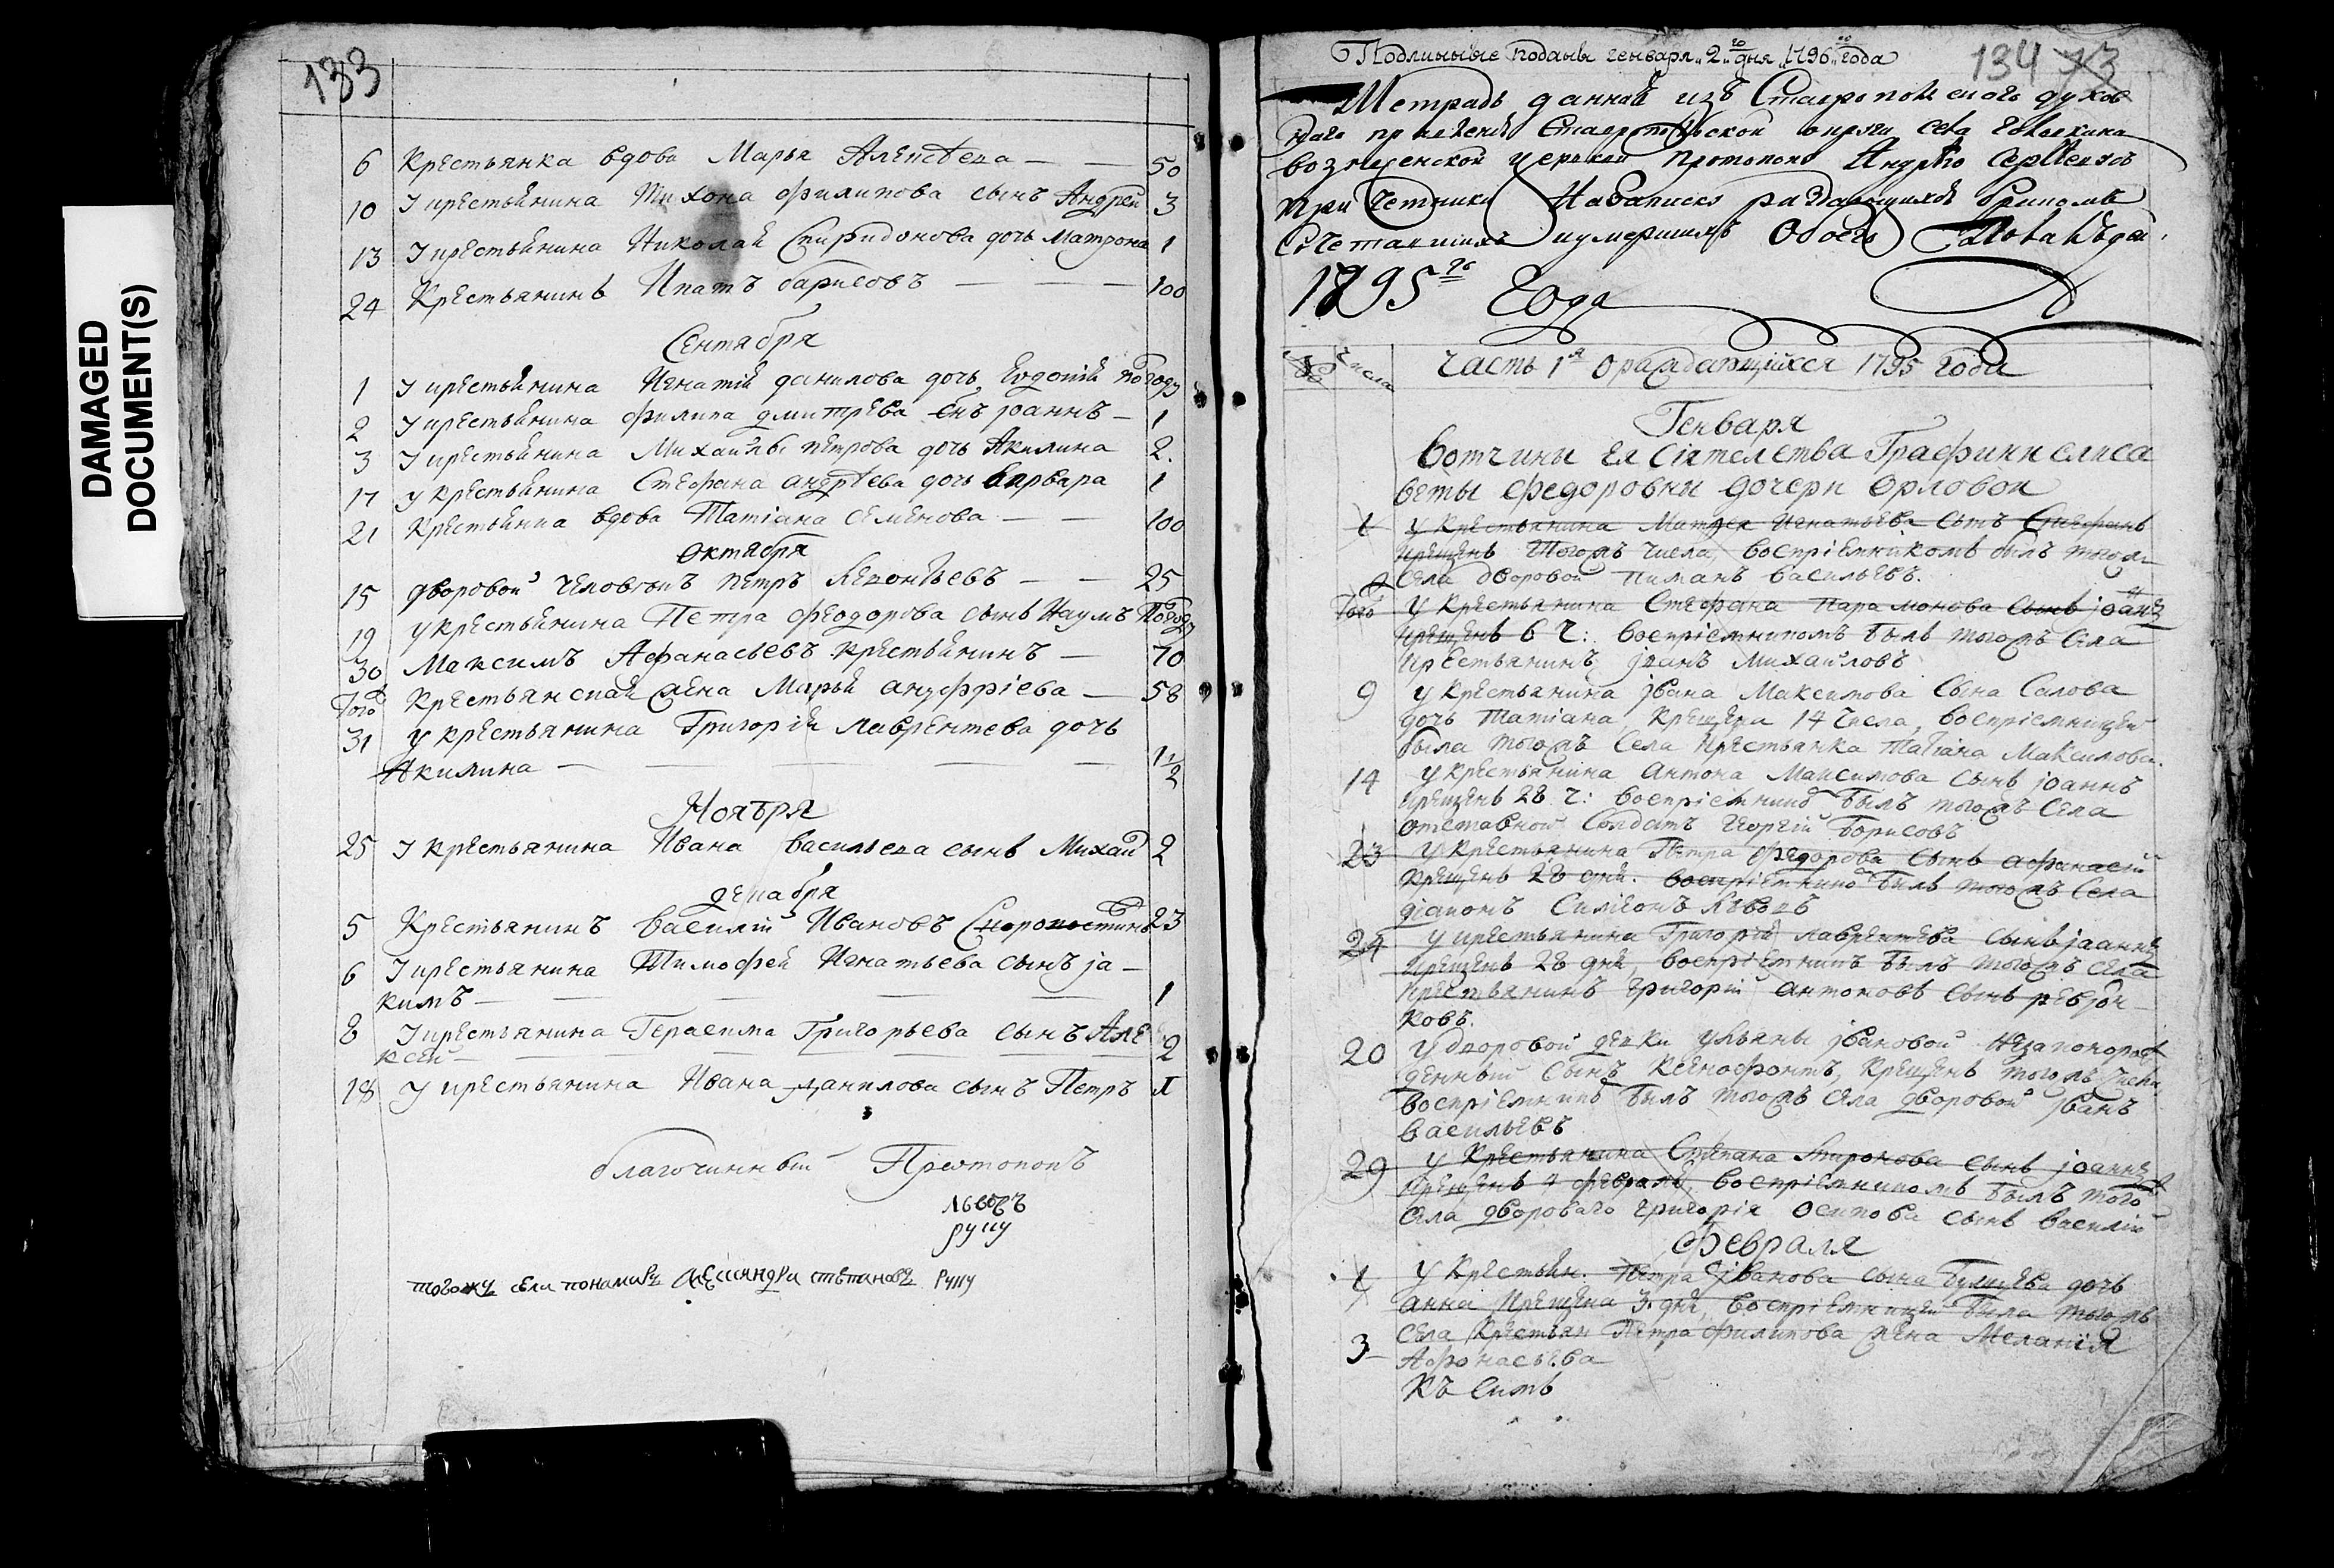 DAMAGED
DOCUMENT(S)
133
6 Крестьянка вдова Марья Алексеева — — 50
10 У крестьянина Тихона Филипова сынъ Андрей 3
13 У крестьянина Николая Спиридонова дочь Матрона 1
24 Крестьянинъ Ипатъ Барисовъ — — — 100
Сентября
1 У крестьянина Игнатія Данилова дочь Евдокія по году
2 У крестьянина Филипа Дмитрева снъ Іоаннъ — 1
3 У крестьянина Михаилы Петрова дочь Акилина 2.
17 У крестьянина Стефана Андрѣева дочь Варвара 1
21 Крестьянка вдова Татіана Семенова — — 100
Октября
15 дворовой человѣкъ Петръ Леонтьевъ — — 25
19 У крестьянина Петра Феодорова сынъ Наумъ По году
30 Максимъ Афанасьевъ крестьянинъ — 70
Того Крестьянская жена Марья Ануфріева — 58
31 У крестьянина Григорія Лаврентева дочь
Акилина — — — — — 1 1/2
Ноября
25 У крестьянина Ивана Васильева сынъ Михаи 2
декабря
5 Крестьянинъ Василій Ивановъ 23
6 У крестьянина Тимофея Игнатьева сынъ Іа-
кимъ — — — — — 1
8 У крестьянина Герасима Григорьева сынъ Але
ксей — — — — — 2
18 У крестьянина Ивана Данилова сынъ Петръ 1
благочинный Протопопъ
Львовъ
руку
тогожъ села понамарь Александръ Степановъ руку
Подлинные поданы генваря "2" го дня "1796" года
134 73
Тетрадь данная изъ Ставропольскаго духов
наго правленія Ставропольской округи села
вознесенской церкви Протопопу Андрѣю Сергѣеву съ
причетники На записку раждающихся бракомъ
Сочетавшихъ и умершихъ Обоего Пола людей.
1795 го Года
№ Числа Часть 1я О раждающихся 1795 года
Генваря
Вотчины ея Сіятелства Графини Елиса
веты Федоровны дочери Орловои
1 У Крестьянина Матвея Игнатьева сынъ Стефанъ
крещенъ Тогожъ числа, воспріемникомъ былъ тогож
села дворовой Василевъ.
Того У Крестьянина Стефана Парамонова сынъ Іоаннъ
крещенъ 6 ч: воспріемникомъ былъ тогожъ села
крестьянинъ Іванъ Михаиловъ
9 У крестьянина Івана Максимова сына Салова
дочь Татіана, крещена 14 числа, воспріемницеи
была тогожъ села крестьянка Татіана Максимова.
14 У крестьянина Антона Максимова сынъ Іоаннъ
крещенъ 28 ч: воспріемникъ былъ тогожъ села
отставной солдатъ Георгій Борисовъ
23 У крестьянина Петра Федорова сынъ Афанасій
крещенъ 28 дня. воспріемникъ былъ тогожъ села
діаконъ Симеонъ Львовъ
24 У крестьянина Григорія Лаврентева сынъ Іаннъ
крещенъ 28 дня, воспріемникъ былъ тогожъ села
крестьянинъ Григорій Антоновъ сынъ
ковъ.
20 У дворовой девки Ульяны Івановой незаконорож
денный сынъ Ксенофонтъ, крещенъ тогожъ числа,
воспріемникъ былъ тогожъ села дворовой Іванъ
Васильевъ
29 У крестьянина Степана Миронова сынъ Іоаннъ
крещенъ 4 февраля, воспріемникомъ былъ того
села двороваго Григорія Осипова сынъ Василій
Февраля
1 У крестьян. Петра Іванова сына дочь
Анна крещена 3. дня, воспріемницеи была тогожъ
села крестьян Петра Филипова жена Меланія
3 Афонасьева
Къ симъ